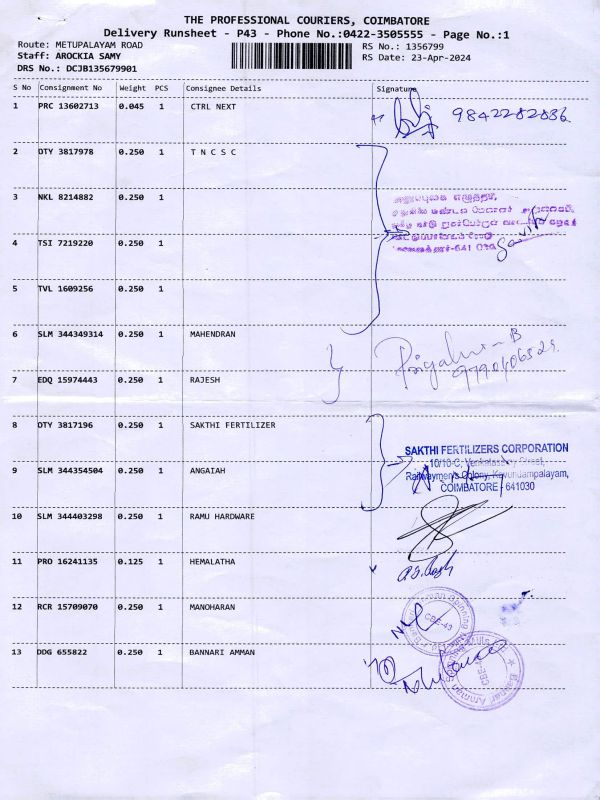 THE PROFESSIONAL COURIERS, COIMBATORE
Delivery Runsheet - P43 - Phone No.:0422-3505555 - Page No.:1
Route: METUPALAYAM ROAD RS No.: 1356799
Staff: AROCKIA SAMY RS Date: 23-Apr-2024
DRS No.: DCJB135679901
S No Consignment No Weight PCS Consignee Details Signature
1 PRC 13602713 0.045 1 CTRL NEXT 9842282836
2 OTY 3817978 0.250 1 T N C S C
3 NKL 8214882 0.250 1
4 TSI 7219220 0.250 1
5 TVL 1609256 0.250 1
6 SLM 344349314 0.250 1 MAHENDRAN
7 EDQ 15974443 0.250 1 RAJESH
8 OTY 3817196 0.250 1 SAKTHI FERTILIZER
SAKTHI FERTILIZERS CORPORATION
10/10-C, Venkatasamy Street,
Railwaymen's Colony, Kavundampalayam,
COIMBATORE - 641030
9 SLM 344354504 0.250 1 ANGAIAH
10 SLM 344403298 0.250 1 RAMU HARDWARE
11 PRO 16241135 0.125 1 HEMALATHA
12 RCR 15709070 0.250 1 MANOHARAN
CBE-43
13 DDG 655822 0.250 1 BANNARI AMMAN